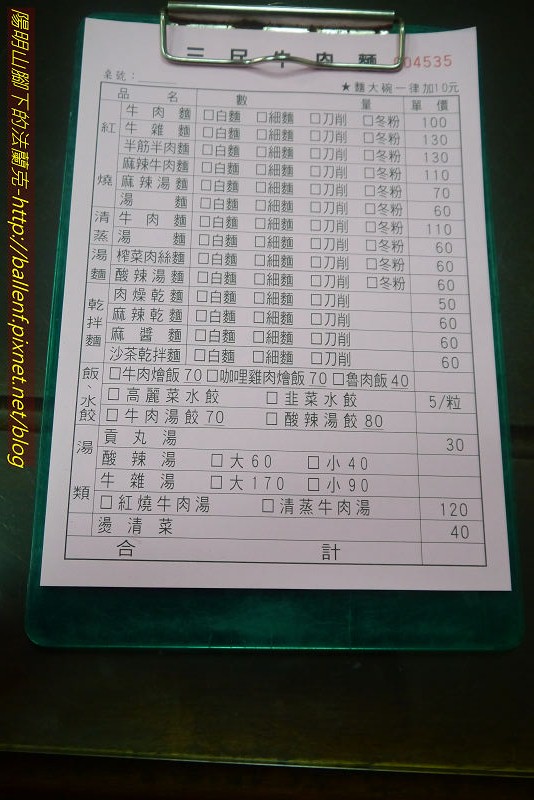 三民牛肉麵 004535
桌號：
★麵大碗一律加10元
品名 數量 單價
紅燒
牛肉麵 □白麵 □細麵 □刀削 □冬粉 100
牛雜麵 □白麵 □細麵 □刀削 □冬粉 130
半筋半肉麵 □白麵 □細麵 □刀削 □冬粉 130
麻辣牛肉麵 □白麵 □細麵 □刀削 □冬粉 110
麻辣湯麵 □白麵 □細麵 □刀削 □冬粉 70
湯麵 □白麵 □細麵 □刀削 □冬粉 60
清蒸
牛肉麵 □白麵 □細麵 □刀削 □冬粉 110
湯麵 □白麵 □細麵 □刀削 □冬粉 60
湯麵
榨菜肉絲麵 □白麵 □細麵 □刀削 □冬粉 60
酸辣湯麵 □白麵 □細麵 □刀削 □冬粉 60
乾拌麵
肉燥乾麵 □白麵 □細麵 □刀削 50
麻辣乾麵 □白麵 □細麵 □刀削 60
麻醬麵 □白麵 □細麵 □刀削 60
沙茶乾拌麵 □白麵 □細麵 □刀削 60
飯、水餃
□牛肉燴飯70 □咖哩雞肉燴飯70 □魯肉飯40
□高麗菜水餃 □韭菜水餃 5/粒
□牛肉湯餃70 □酸辣湯餃80
湯類
貢丸湯 30
酸辣湯 □大60 □小40
牛雜湯 □大170 □小90
□紅燒牛肉湯 □清蒸牛肉湯 120
燙清菜 40
合計
陽明山腳下的法蘭克-http://ballenf.pixnet.net/blog